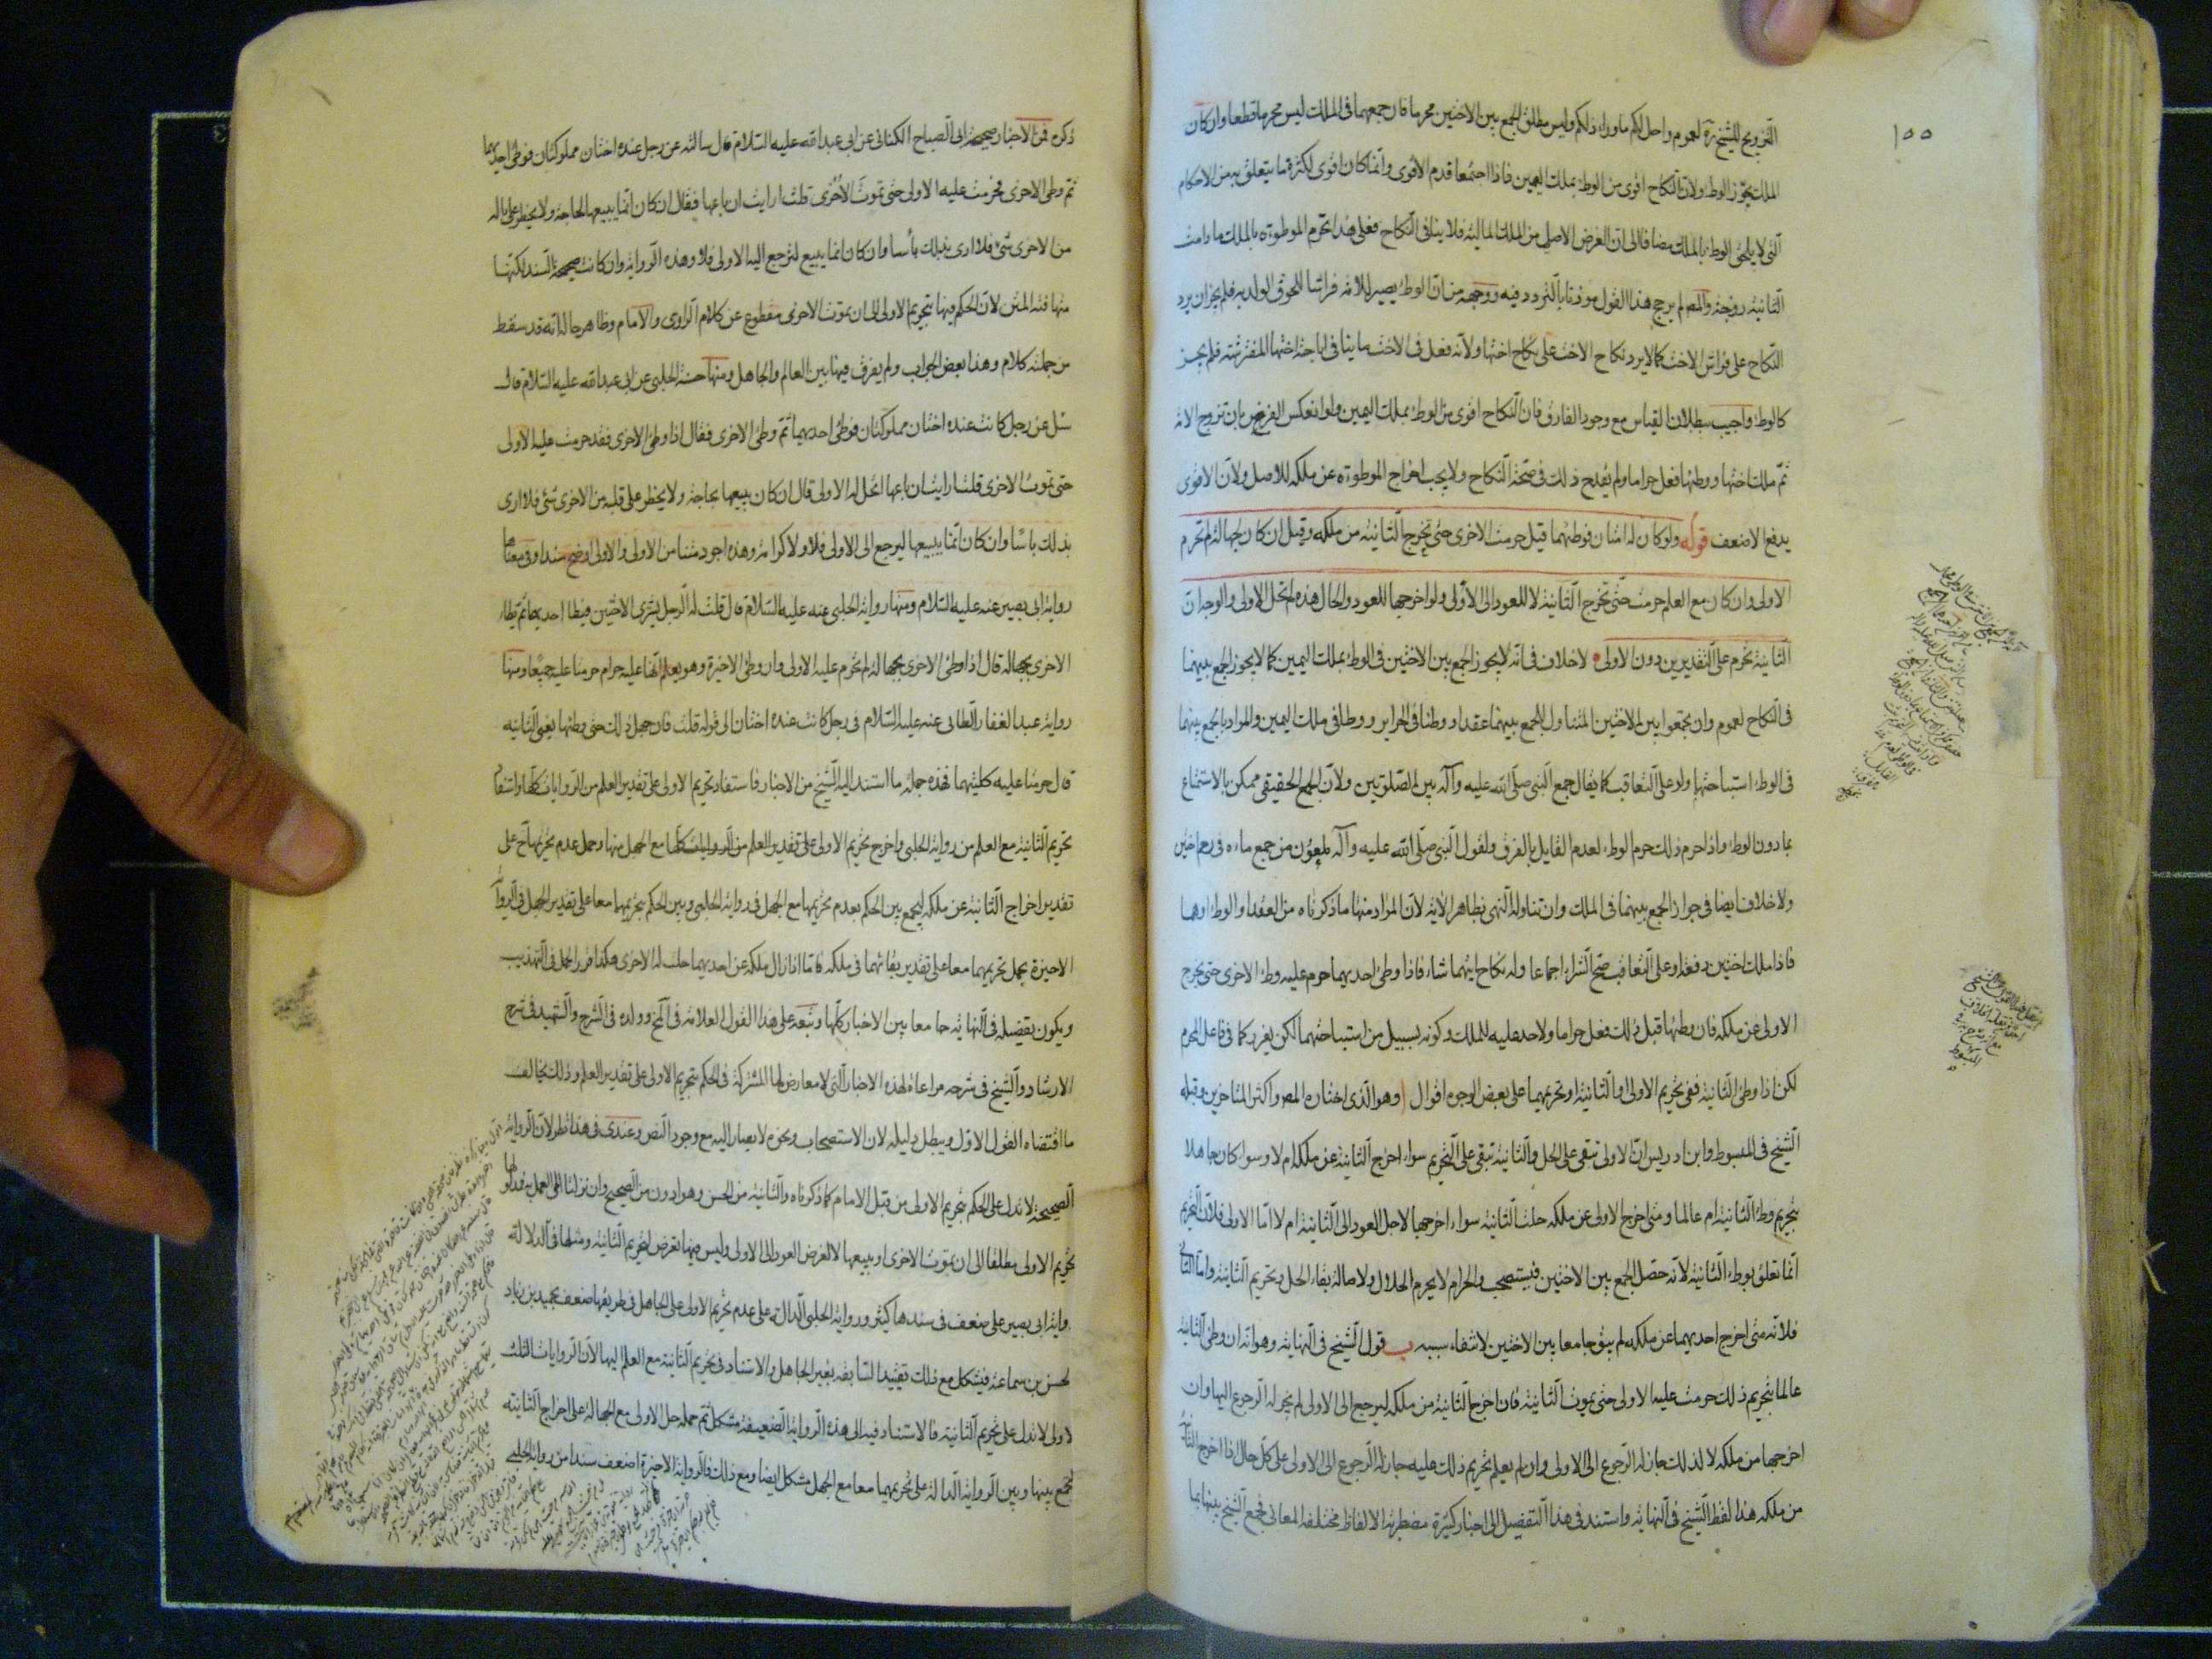 ١٥٥
التزويج للشيخ ره لعموم واحل لكم ماوراء ذلكم وليس مطلق الجمع بين الاختين محرما فان جمعهما فى الملك ليس محرما قطعا وان كان
الملك يجوز الوطء ولان النكاح اقوى من الوطء بملك اليمين فاذا اجتمعا قدم الاقوى وانما كان اقوى لكثرة ما يتعلق به من الاحكام
التى لا يلحق الوطء بالملك مضافا الى ان الغرض الاصلى من الملك المالية فلا ينافى النكاح فعلى هذا تحرم الموطوءة بالملك مادامت
الثانية زوجة والمص لم يرجح هذا القول موذنا بالتردد فيه ووجهه من ان الوطء يصير للامة فراشا للحوق الولد به فلم يجز ان يرد
النكاح على فراش الاخت كما لا يرد نكاح الاخت على نكاح اختها ولانه فعل فى الاخت ما ينافى اباحة اختها المفترشة فلم يجز
كالوطء واجيب ببطلان القياس مع وجود الفارق فان النكاح اقوى من الوطء بملك اليمين ولو انعكس الفرض بان تزوج الامة
ثم ملك اختها ووطئها فعل حراما ولم يقدح ذلك فى صحة النكاح ولا يجب اخراج الموطوءة عن ملكه للاصل ولان الاقوى
يدفع الاضعف قوله ولو كان له امتان فوطئهما قيل حرمت الاخرى حتى تخرج الثانية من ملكه وقيل ان كان لجهالة لم تحرم
الاولى وان كان مع العلم حرمت حتى تخرج الثانية لا للعود الى الاولى ولو اخرجها للعود والحال هذه لم تحل الاولى والوجه ان
الثانية تحرم على التقديرين دون الاولى لا خلاف فى انه لا يجوز الجمع بين الاختين فى الوطء بملك اليمين كما لا يجوز الجمع بينهما
فى النكاح لعموم وان تجمعوا بين الاختين المتناول للجمع بينهما عقدا ووطئا فى الحراير ووطئا فى ملك اليمين والمراد بالجمع بينهما
فى الوطء استباحتها ولو على التعاقب كما يقال جمع النبى صلى الله عليه وآله بين الصلوتين ولان الجمع الحقيقى ممكن بالاستمتاع
بما دون الوطء واذا حرم ذلك حرم الوطء لعدم القايل بالفرق ولقول النبى صلى الله عليه وآله ملعون من جمع ماءه فى رحم اختين
ولا خلاف ايضا فى جواز الجمع بينهما فى الملك وان تناوله النهى بظاهر الاية لان المراد منها ما ذكرناه من العقد او الوطء او هما
فاذا ملك اختين دفعة او على التعاقب صح الشراء اجماعا وله نكاح ايتهما شاء فاذا وطئ احديهما حرم عليه وطء الاخرى حتى يخرج
الاولى عن ملكه فان وطئها قبل ذلك فعل حراما ولا حد عليه للملك وكونه بسبيل من استباحتهما لكن يعزر كما فى فاعل المحرم
لكن اذا وطئ الثانية ففى تحريم الاولى او الثانية او تحريمهما على بعض الوجوه اقوال ا وهو الذى اختاره المص واكثر المتاخرين وقبله
الشيخ فى المبسوط وابن ادريس ان الاولى تبقى على الحل والثانية تبقى على التحريم سواء اخرج الثانية عن ملكه ام لا وسواء كان جاهلا
بتحريم وطء الثانية ام عالما ومتى اخرج الاولى عن ملكه حلت الثانية سواء اخرجها لاجل العود الى الثانية ام لا اما الاولى فلان التحريم
انما تعلق بوطء الثانية لانه حصل الجمع بين الاختين فيستصحب والحرام لا يحرم الحلال ولاصالة بقاء الحل وتحريم الثانية واما الثانى
فلانه متى اخرج احديهما عن ملكه لم يبق جامعا بين الاختين لانتفاء سببه ب قول الشيخ فى النهاية وهو انه ان وطئ الثانية
عالما بتحريم ذلك حرمت عليه الاولى حتى يموت الثانية فان اخرج الثانية من ملكه ليرجع الى الاولى لم يجز له الرجوع اليها وان
اخرجها من ملكه لا لذلك جاز له الرجوع الى الاولى وان لم يعلم تحريم ذلك عليه جاز له الرجوع الى الاولى على كل حال اذا اخرج الثانية
من ملكه هذا لفظ الشيخ فى النهاية واستند فى هذا التفصيل الى اخبار كثيرة مضطربة الالفاظ مختلفة المعانى فجمع الشيخ بينها بما
ذكره فمن الاخبار صحيحة ابى الصباح الكنانى عن ابى عبد الله عليه السلام قال سالته عن رجل عنده اختان مملوكتان فوطئ احديهما
ثم وطئ الاخرى فحرمت عليه الاولى حتى تموت الاخرى قلت ارايت ان باعها فقال ان كان انما يبيعها لحاجة ولا يخطر على باله
من الاخرى شىء فلا ارى بذلك بأسا وان كان انما يبيع لترجع اليه الاولى فلا وهذه الرواية وان كانت صحيحة السند لكنها
متهافتة المتن لان الحكم فيها بتحريم الاولى الى ان يموت الاخرى مقطوع عن كلام الراوى والامام وظاهر حالها انه قد سقط
من جملته كلام وهذا بعض الجواب ولم يفرق فيها بين العالم والجاهل ومنها حسنة الحلبى عن ابى عبد الله عليه السلام قال
سئل عن رجل كانت عنده اختان مملوكتان فوطئ احديهما ثم وطئ الاخرى فقال اذا وطئ الاخرى فقد حرمت عليه الاولى
حتى تموت الاخرى قلت ارايت ان باعها اتحل له الاولى قال ان كان يبيعها لحاجة ولا يخطر على قلبه من الاخرى شئ فلا ارى
بذلك باسا وان كان انما يبيعها ليرجع الى الاولى فلا ولا كرامة وهذه اجود متنا من الاولى والاولى اوضح سندا وفى معناهما
رواية ابى بصير عنه عليه السلام ومنها رواية الحلبى عنه عليه السلام قال قلت له الرجل يشترى الاختين فيطا احديهما ثم يطأ
الاخرى بجهالة قال اذا وطئ الاخرى بجهالة لم تحرم عليه الاولى وان وطئ الاخيرة وهو يعلم انها عليه حرام حرمتا عليه جميعا ومنها
رواية عبد الغفار الطائى عنه عليه السلام فى رجل كانت عنده اختان الى قوله قلت فان جهل ذلك حتى وطئها يعنى الثانيه
قال حرمتا عليه كلتيهما فهذه جملة ما استند اليه الشيخ من الاخبار فاستفاد تحريم الاولى على تقدير العلم من الروايات كلها واستفاد
تحريم الثانية مع العلم من رواية الحلبى واخرج تحريم الاولى على تقدير العلم من الروايات كلها مع الجهل منها وحمل عدم تحريمها ح على
تقدير اخراج الثانية عن ملكه ليجمع بين الحكم بعدم تحريمها مع الجهل فى رواية الحلبى وبين الحكم بتحريمهما معا على تقدير الجهل فى الرواية
الاخيرة بحمل تحريمهما معا على تقدير بقائهما فى ملكه فاما اذا زال ملكه عن احديهما حلت له الاخرى هكذا قرر الحل فى التهذيب
ويكون تفصيله فى النهاية جامعا بين الاخبار كلها وتبعه على هذا القول العلامة فى المخ وولده فى الشرح والشهيد فى شرح
الارشاد والشيخ فى شرحه مراعاة لهذه الاخبار التى لا معارض لها المشتركة فى الحكم بتحريم الاولى على تقدير العلم وذلك يخالف
ما اقتضاه القول الاول ويبطل دليله لان الاستصحاب ونحوه لا يصار اليه مع وجود النص وعندى فى هذا نظر لان الرواية
الصحيحة لا تدل على الحكم بتحريم الاولى من قبل الامام كما ذكرناه والثانية من الحسن وهو ادون من الصحيح وان نزلنا الى العمل به فمدلولها
تحريم الاولى مطلقا الى ان يموت الاخرى او يبيعها لا لغرض العود الى الاولى وليس فيها تعرض لتحريم الثانية ومثلها فى الدلالة
رواية ابى بصير على ضعف فى سندها كثير ورواية الحلبى الدالة على عدم تحريم الاولى على الجاهل فى طريقها ضعف بحميد بن زياد
الحسن بن سماعة فيشكل مع ذلك تقييد السابقة بغير الجاهل والاستناد فى تحريم الثانية مع العلم اليها لان الروايات الثلث
الاولى لا تدل على تحريم الثانية فالاستناد فيه الى هذه الرواية الضعيفة مشكل ثم حمله حل الاولى مع الجهالة على اخراج الثانية
لجمع بينها وبين الرواية الدالة على تحريمهما معا مع الجهل مشكل ايضا ومع ذلك فالرواية الاخيرة اضعف سندا من رواية الحلبى